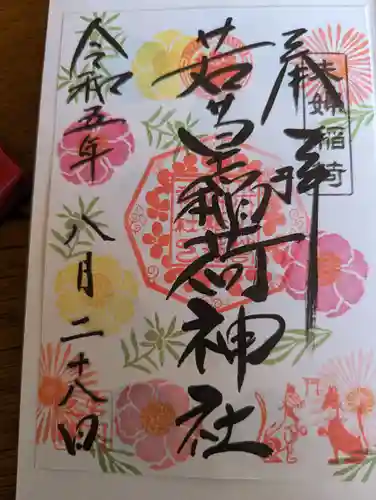 奉拝
夫婦稲荷
若宮稲荷神社
令和五年
八月二十八日